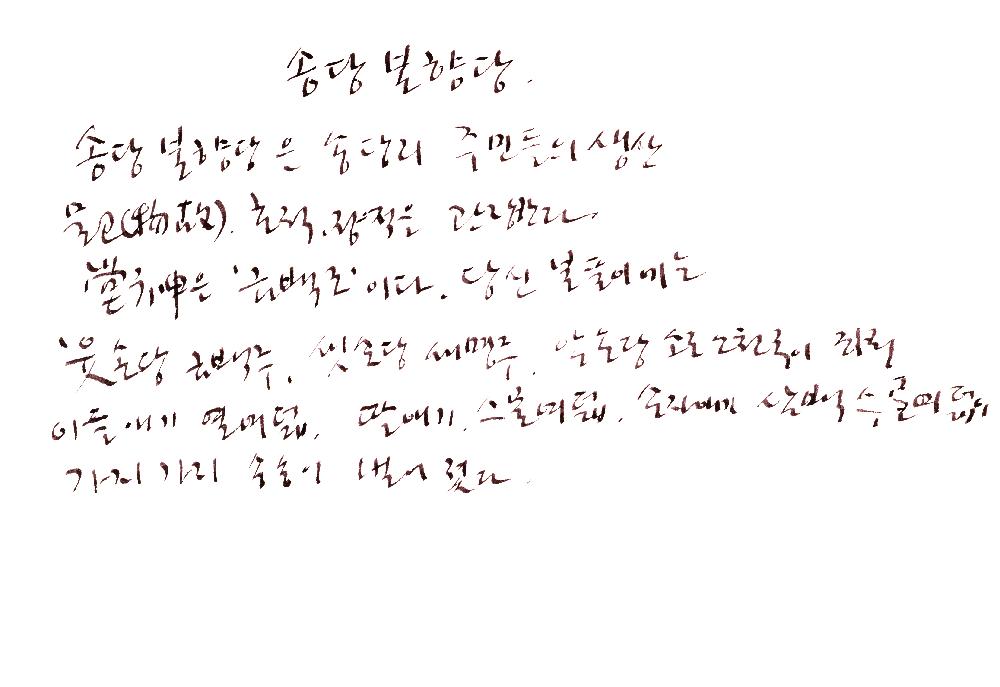 송당 본향당.
송당 본향당은 송당리 주민들의 생산
물고(物故). 호적. 장적을 관리한다.
堂神은 '금백조'이다. 당신 본풀이에는
'웃손당 금백주, 셋손당 세명주, 알손당 소로소천국이 좌정
아들애기 열여덟, 딸애기 스물여덟, 손자애기 삼백 수물여덟,
가지 가지 송송이 벌어 졌다.